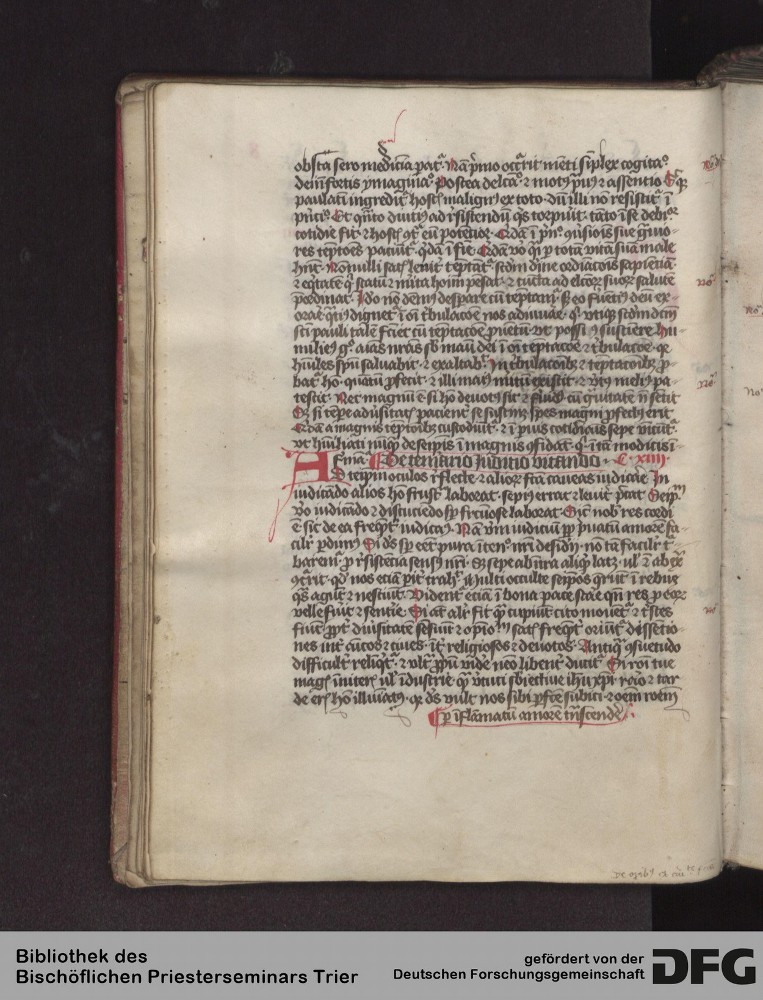 obsta sero medicina parat᷑. Nam pͥmo occurrit menti simplex cogitatᵒ.
deinde fortis ymaginatᵒ. Postea delectatᵒ ⁊ motꝰ prauꝰ ⁊ assentio
paulatim ingreditur hostis malignꝰ ex toto dum illi non resistitur in
principio. Et quanto diutius ad resistendum quis torpuit. tanto in se debilior
cotidie fit ⁊ hostis contra eum potentior. Quidam in principio conuersionis sue grauio-
res temptationes patiuntur. quidam in fine. Quidam vero quasi per totam vitam suam male
habent. Nonnulli satis leniter temptantur. secundum diuine ordinationis sapientiam
⁊ equitatem que statum ⁊ merita hominum pensat ⁊ cuncta ad electorum suorum salutem
preordinat. Ideo non debemus desperare cum temptamur. sed eo feruentius deum ex-
orare quatinus dignetur in omni tribulatione nos adiuuare. qui vtique secundum dictum
sancti pauli talem faciet cum temptatione prouentum vt possimus sustinere Hu-
miliemus ergo animas nostras sub manu dei in omni temptatione ⁊ tribulatione. quia
humiles spiritu saluabit ⁊ exaltabit. In tribulationibus ⁊ temptationibus pro-
batur homo. quantum profecit. ⁊ illi maius meritum existit ⁊ virtus melius pa-
tescit. Nec magnum est si homo deuotus sit ⁊ feruidus cum grauitatem non sentit
Sed si tempore aduersitatis patienter se sustinet spes magni profectus erit
Quidam a magnis temptationibus custodiuntur. ⁊ in paruis cotidianis sepe vincuntur.
vt humiliati nunquam de seipsis in magnis confidant. qui in tam modicis in-
firmantur. De temerario Iudicio vitando. C. xiiii.
Ad teipsum oculos reflecte ⁊ aliorum facta caueas iudicare In
iudicando alios homo frustra laborat. sepius errat ⁊ leuiter peccat Seipsum
vero iudicando ⁊ discutiendo semper fructuose laborat. Sicut nobis res cordi
est sic de ea frequenter iudicamus. Nam verum iudicium propter priuatum amorem fa-
ciliter perdimus Si deus semper esset pura intentio nostri desiderii. non tam faciliter tur-
baremur pro resistentia sensus nostri. Sed sepe ab intra aliquid latet. vel etiam ab extra
concurrit. quod nos etiam pariter trahit. Multi occulte seipsos querunt in rebus
quas agunt ⁊ nesciunt. Videntur etiam in bona pace stare quando res pro eorum
velle fiunt ⁊ sentire Si autem aliter fit quam cupiunt cito mouentur ⁊ tristes
fiunt propter diuersitatem sensuum ⁊ opinionum satis frequenter oriuntur dissentio-
nes inter amicos ⁊ ciues. inter religiosos ⁊ deuotos. Antiqua consuetudo
difficulter relinquitur. ⁊ vltra proprium videre nemo libenter ducitur Si rationi tue
magis inniteris vel industrie quam virtuti subiectiue ihesu xpristi. raro ⁊ tar-
de eris homo illuminatus. quia deus vult nos sibi perfecte subici. ⁊ omnem rationem
per inflammatum amorem transcendere.
Bibliothek des
Bischöflichen Priesterseminars Trier
gefördert von der
Deutschen Forschungsgemeinschaft
DFG